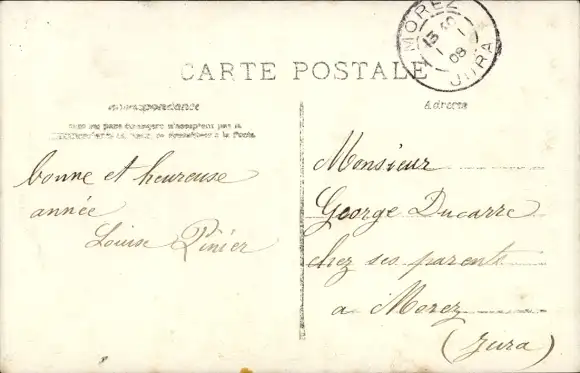 MOREZ
13 40
1 - 1
08
JURA
CARTE POSTALE
Correspondance
Adresse
bonne et heureuse
année
Louise Pinier
Monsieur
George Ducarre
chez ses parents
a Morez
(Jura)